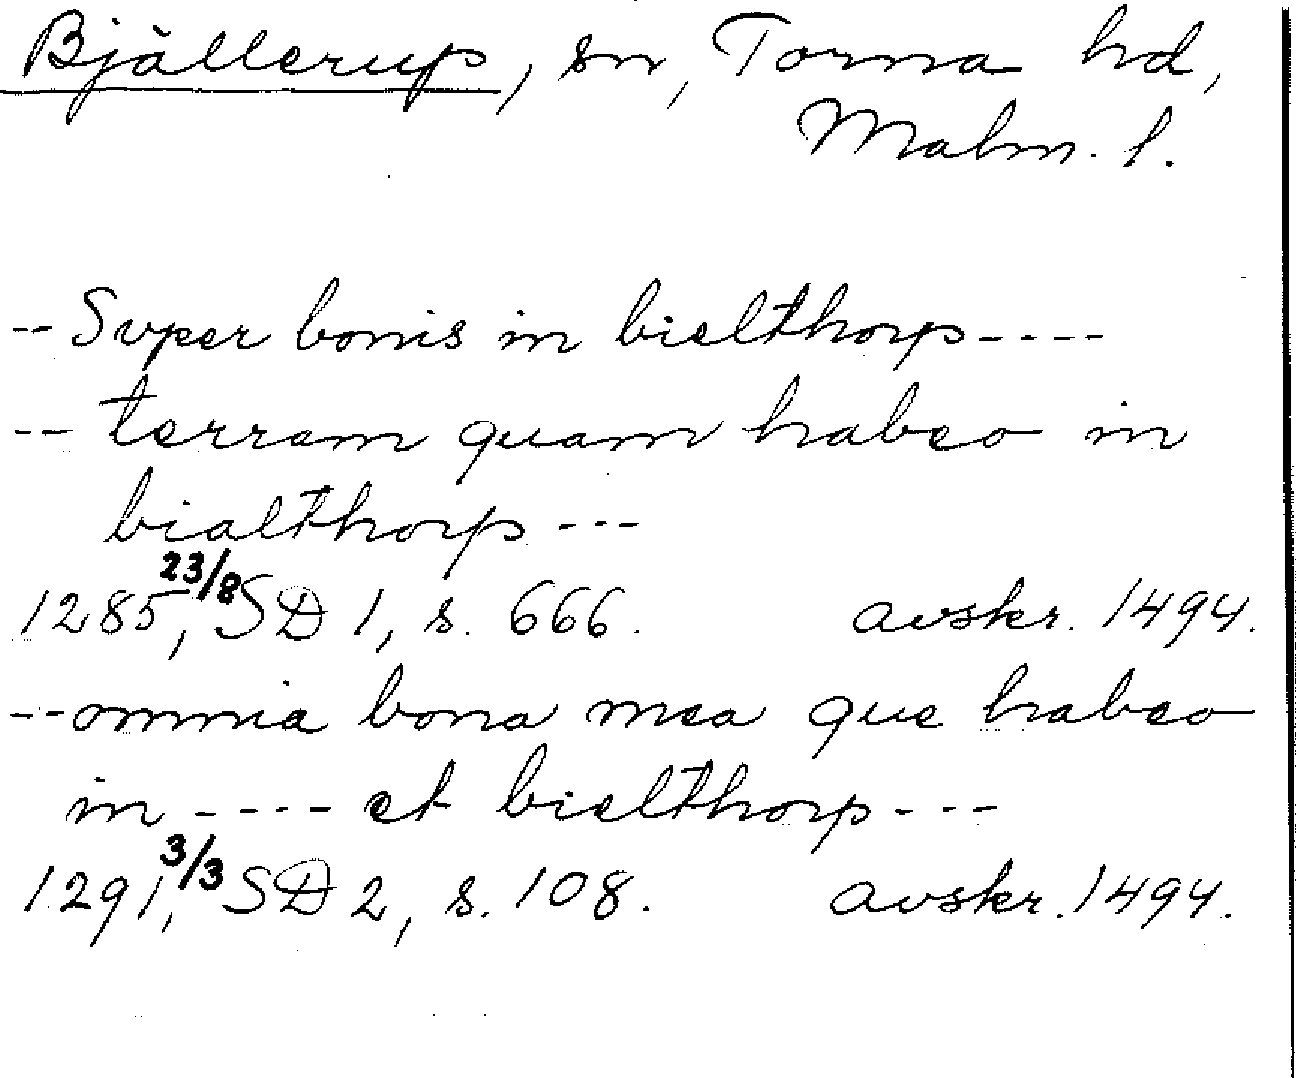 Bjällerup, sn, Torna hd,
Malm. l.
-- Svper bonis in bielthorp----
-- terram quam habeo in
bialthorp ---
1285, 23/8 SD 1, s. 666. avskr. 1494.
--omnia bona mea que habeo
in ---- et bielthorp---
1291, 3/3 SD 2, s. 108. avskr. 1494.